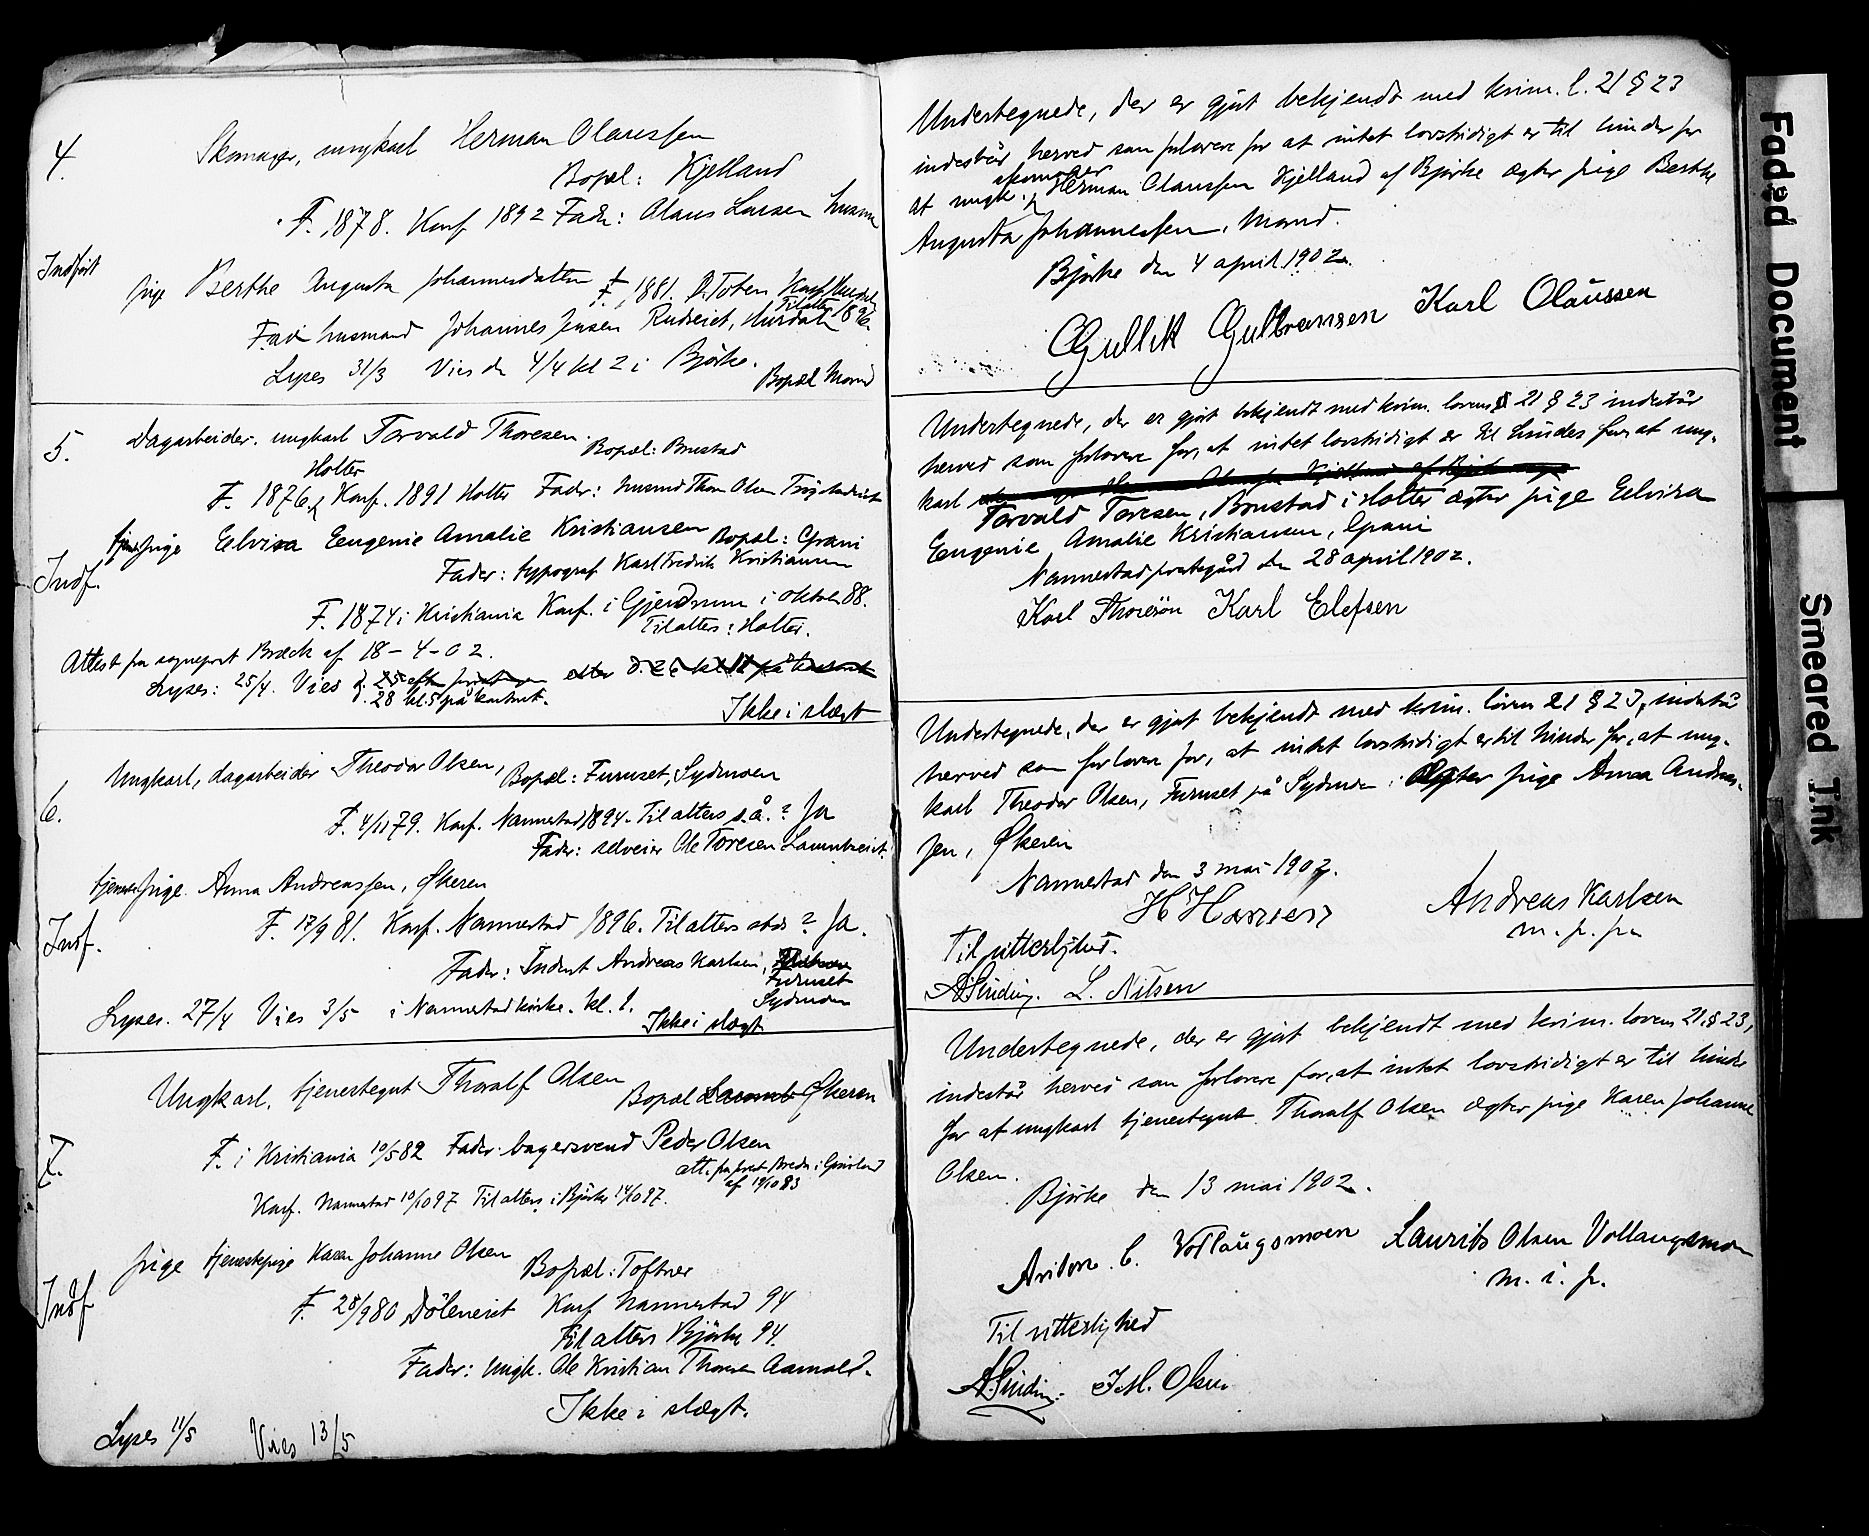 4.
Skomager, ungkarl Herman Olaussen
Bopæl: Kjelland
F. 1878. Konf 1892 Fader: Olaus Larsen husm
Indført
pige Berthe Augusta Johannesdatter F. 1881. Ø. Toten Konf. Hurdal
Tilalters 1896.
Fader husmand Johannes Jensen Rudseiet, Hurdal
Lyses 31/3 Vies den 4/4 kl 2 i Bjørke.
Bopæl Maurud
5.
Dagarbeider. ungkarl Torvald Thoresen.
Bopæl: Brustad
Holter
F. 1876, Konf. 1891 Holter Fader: husmd Thor Olsen
tjenestpige Eelvisa Eeugenie Amalie Kristiansen Bopæl: Grani
Fader: typograf Karl Fredrik Kristiansen
Indf.
F. 1874 i Kristiania Konf. i Gjerdrum i oktober 88.
Til alters: Holter.
Attest fra sogneprest Bræck af 18-4-02.
Lyses: 25/4. Vies d. 25 efter eller d. 26 kl 11 på kontoret
d. 28 kl. 5 på kontoret.
Ikke i slægt
6.
Ungkarl, dagarbeider Theodor Olsen, Bopæl: Furuset, Sydmoen
F. 4/11 79. Konf. Nannestad 1894. Til alters s.å.? Ja
Fader: selveier Ole Toresen
tjenestpige. Anna Andreassen, Økeren
F. 17/9 81. Konf. Nannestad 1896. Til alters ? Ja.
Indf.
Fader: Inderst Andreas Karlsen,
Furuset
Sydmoen
Lyses. 27/4 Vies 3/5 i Nannestad kirke. kl. 1.
Ikke i slægt
Ungkarl. tjenestegut Thoralf Olsen
Bopæl Økeren
7.
F. i Kristiania 10/5 82 Fader: bagersvend Peder Olsen
att. fra prest Bredo i Grønland
af 19/10 83
Konf. Nannestad 10/10 97 Til alters i Bjørke 17/10 97.
pige tjenestepige Karen Johanne Olsen
Bopæl: Toftner
Indf
F. 28/9 80 Döleneiet Konf Nannestad 94
Til alters Bjørke 94.
Fader: Ungk. Ole Kristian Thoresen Aamold.
Ikke i slægt.
Lyses 11/5 Vies 13/5
Undertegnede, der er gjort bekjendt med krim. l. 21 § 23
indestår herved som forlovere for at intet lovstridigt er til hinder for
skomager
at ungk. Herman Olaussen Kjelland af Bjørke ægter pige Berthe
Augusta Johannessen, Maurud.
Bjørke den 4 april 1902.
Gullik Gulbransen Karl Olaussen
Undertegnede, der er gjort bekjendt med krim. lovens 21 § 23 indestår
herved som forlovere for, at intet lovstridigt er til hinder for, at ung-
karl
Torvald Toresen, Brustad i Holter ægter pige Eelvisa
Eeugenie Amalie Kristiansen, Grani
Nannestad prestegård den 28 april 1902.
Karl Thoresøn Karl Elefsen
Undertegnede, der er gjort bekjendt med krim. loven 21 § 23, indestår
herved som forlovere for, at intet lovstridigt er til hinder for, at ung-
karl Theodor Olsen, Furuset på Sydmoen ægter pige Anna Andreas-
sen, Økeren
Nannestad den 3 mai 1902.
H Hansen Andreas Karlsen
m. p. p.
Til vitterlighed.
A Sinding. L. Nilsen
Undertegnede, der er gjort bekjendt med krim. lovens 21. § 23,
indestår herved som forlovere for, at intet lovstridigt er til hinder
for at ungkarl tjenestegut Thoralf Olsen ægter pige Karen Johanne
Olsen.
Bjørke den 13 mai 1902.
Anton. C. Vollaugsmoen Laurits Olsen Vollaugsmoen
m. i. p.
Til vitterlighed
A. Sinding. J. M. Olsen
Faded Document
Smeared Ink